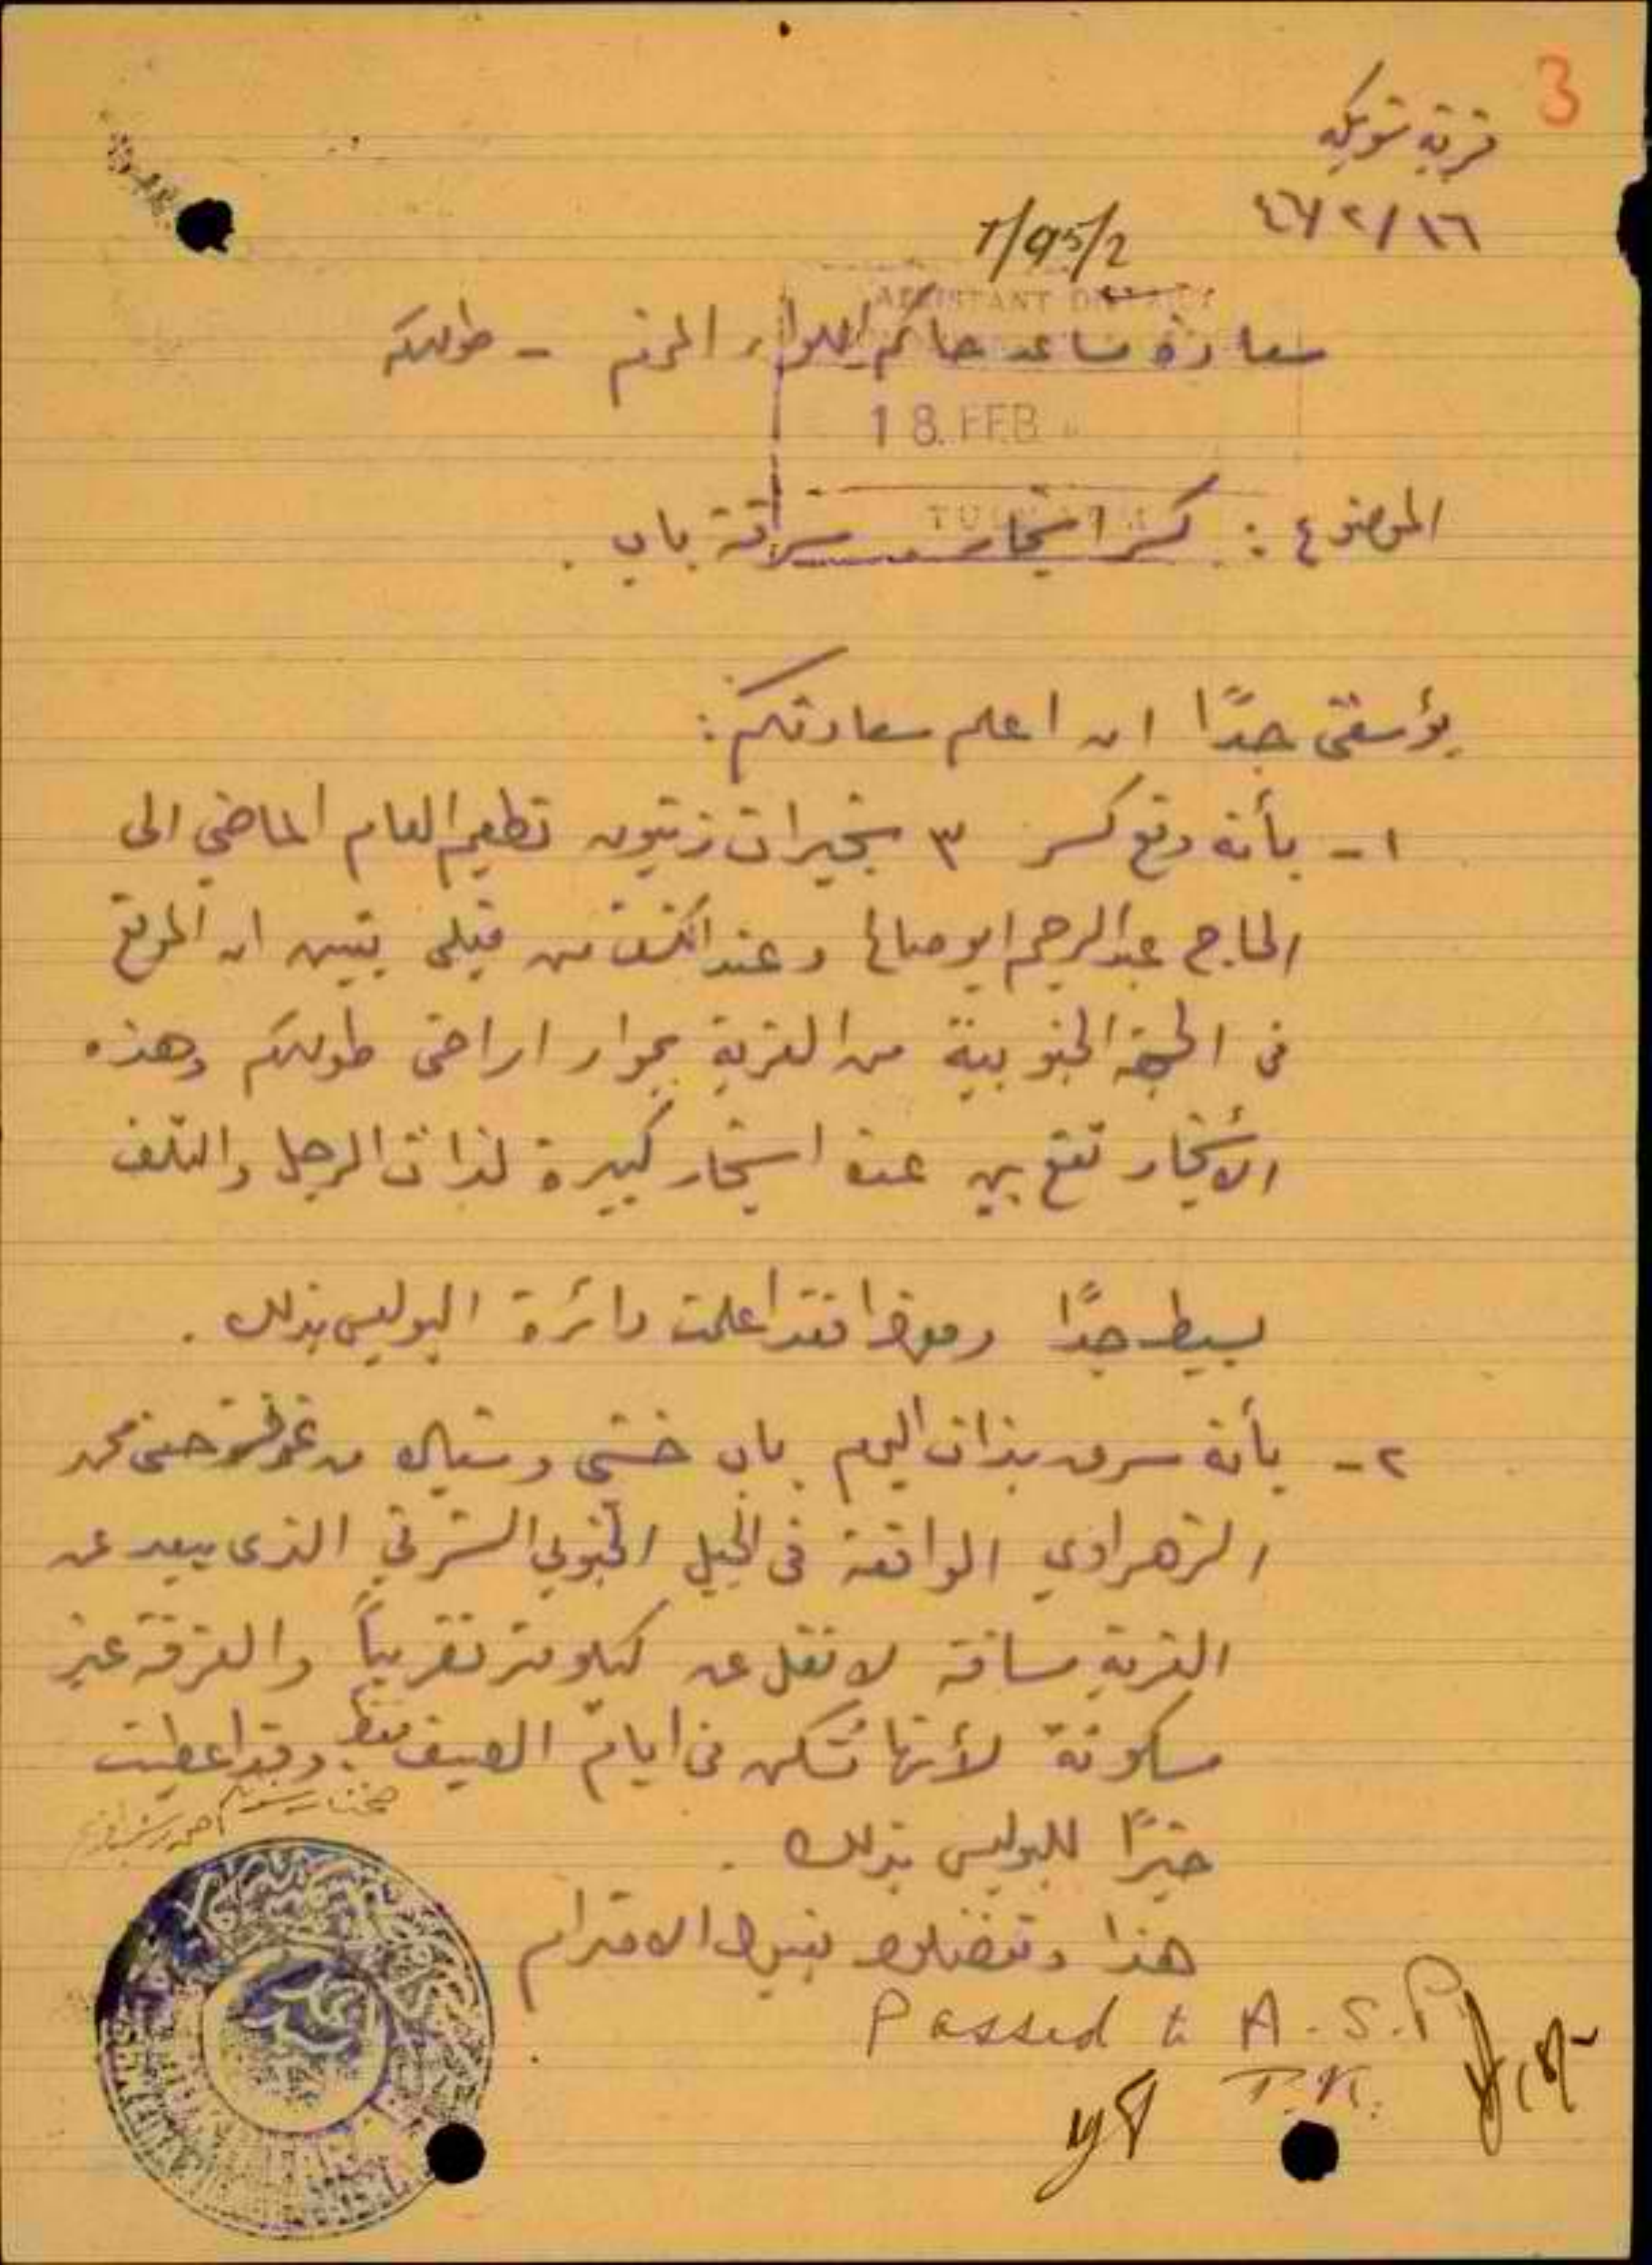 3
قرية شويكه
١٦/٢/٤٦
7/95/2
ASSISTANT DISTRICT
سعادة مساعد حاكم اللواء المحترم - طولكرم
18 FEB
الموضوع : كسر اشجار وسرقة باب .
يؤسفني جدًا ان اعلم سعادتكم :
١- بأنه وقع كسر ٣ شجيرات زيتون تطعيم العام الماضي الى
الحاج عبد الرحيم ابو صالح وعند الكشف من قبلي تبين ان الموقع
في الجهة الجنوبية من القرية بجوار اراضي طولكرم وهذه
الأشجار تقع بين عدة اشجار كبيرة لذات الرجل والتلف
بسيط جدًا ومع هذا فقد اعلمت دائرة البوليس بذلك .
٢- بأنه سرق بذات اليوم باب خشبي وشباك من غرفة حسن محمد
الزهراوي الواقعة في الجبل الجنوبي الشرقي الذي يبعد عن
القرية مسافة لا تقل عن كيلو متر تقريباً والغرفة غير
مسكونة لأنها تُسكن في ايام الصيف فقط وقد اعطيت
خبرًا للبوليس بذلك .
هذا وتفضلوا بقبول الاحترام
مختار شويكه
Passed to A.S.P
T.K.